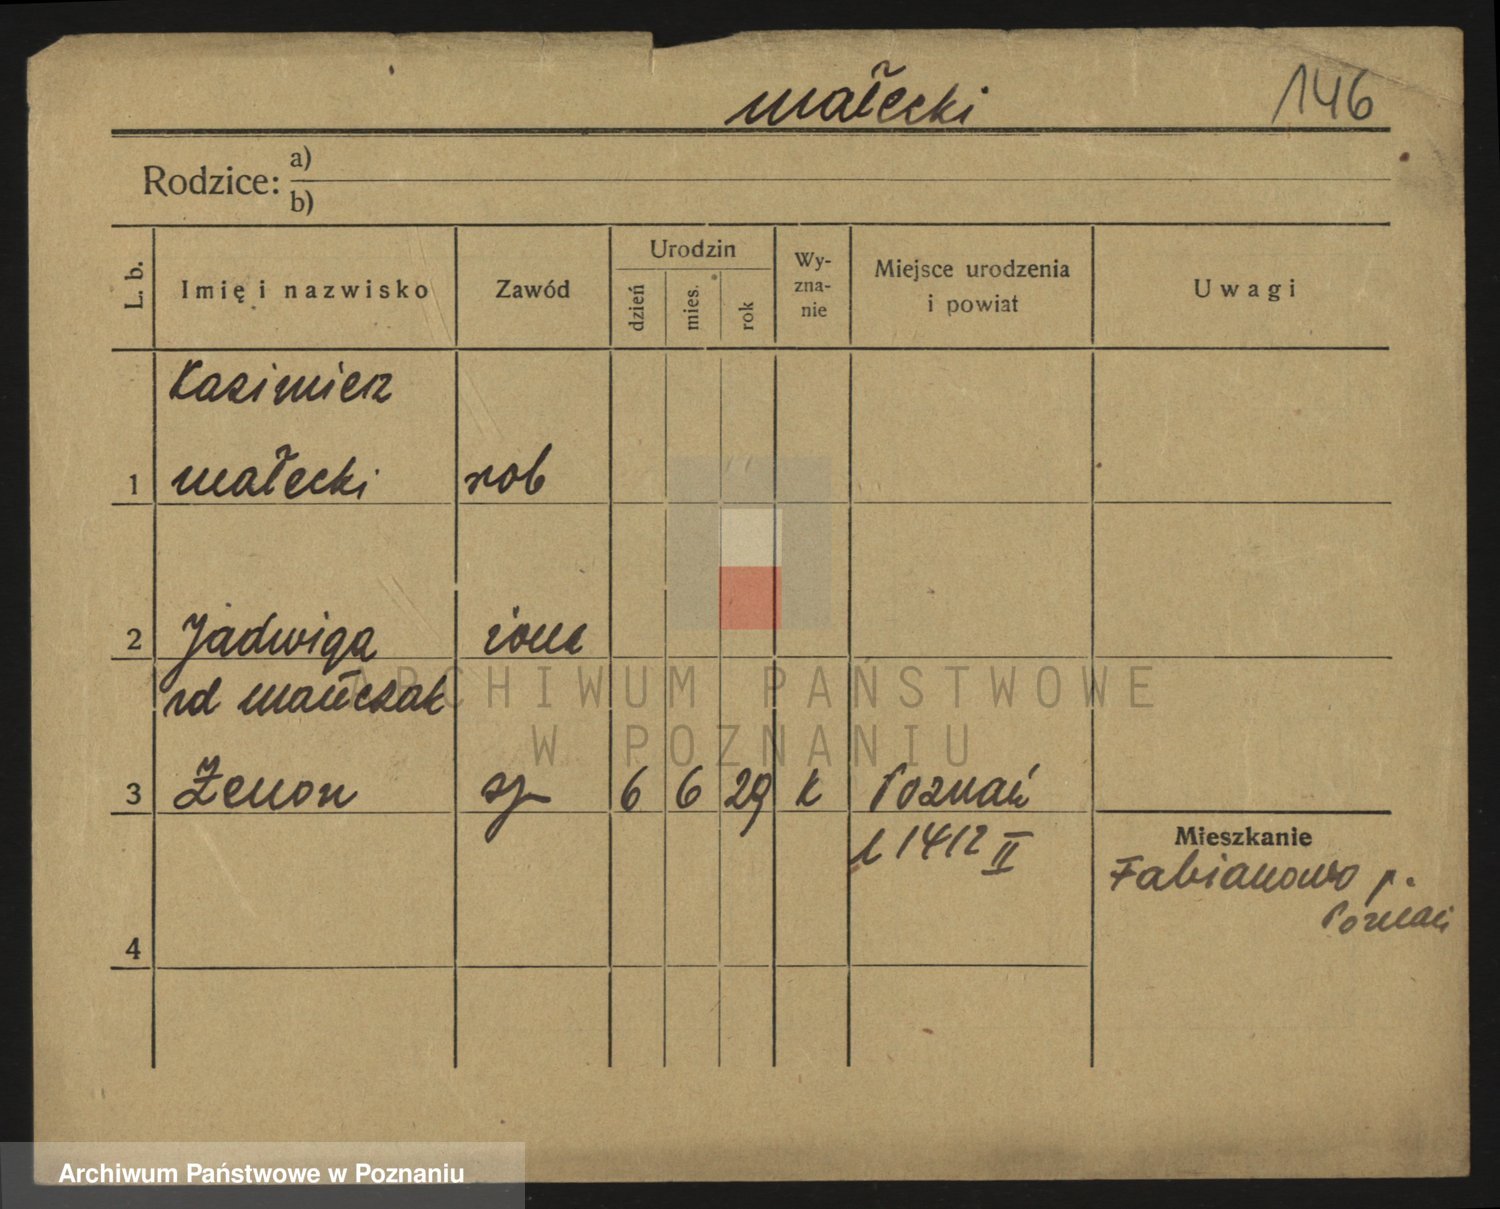 Małecki 146
Rodzice: a)
b)
L. b. Imię i nazwisko Zawód Urodzin dzień mies. rok Wy-zna-nie Miejsce urodzenia i powiat Uwagi
Kazimierz
1 Małecki rob
2 Jadwiga żona
rd Mańczak
3 Zenon sy 6 6 29 k Poznań
l 1412 II
Mieszkanie
Fabianowo p.
Poznań
4
ARCHIWUM PAŃSTWOWE
W POZNANIU
Archiwum Państwowe w Poznaniu